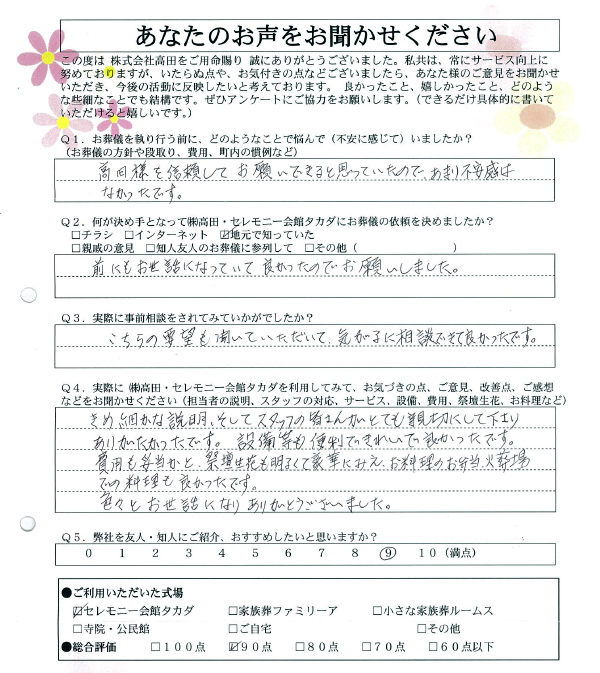 あなたのお声をお聞かせください
この度は 株式会社高田をご用命賜り 誠にありがとうございました。私共は、常にサービス向上に
努めておりますが、いたらぬ点や、お気付きの点などございましたら、あなた様のご意見をお聞かせ
いただき、今後の活動に反映したいと考えております。 良かったこと、嬉しかったこと、どのよう
な些細なことでも結構です。ぜひアンケートにご協力をお願いします。（できるだけ具体的に書いて
いただけると嬉しいです。）
Q１．お葬儀を執り行う前に、どのようなことで悩んで（不安に感じて）いましたか？
（お葬儀の方針や段取り、費用、町内の慣例など）
高田様を信頼してお願いできると思っていたので、あまり不安感は
なかったです。
Q２．何が決め手となって㈱高田・セレモニー会館タカダにお葬儀の依頼を決めましたか？
□チラシ □インターネット ☑地元で知っていた
□親戚の意見 □知人友人のお葬儀に参列して □その他（ ）
前にもお世話になっていて良かったのでお願いしました。
Q３．実際に事前相談をされてみていかがでしたか？
こちらの要望も聞いていただいて、気がるに相談できて良かったです。
Q４．実際に ㈱高田・セレモニー会館タカダを利用してみて、お気づきの点、ご意見、改善点、ご感想
などをお聞かせください（担当者の説明、スタッフの対応、サービス、設備、費用、祭壇生花、お料理など）
きめ細かな説明、そしてスタッフの皆さんがとても親切にして下さり
ありがたかったです。設備等も便利できれいで良かったです。
費用も妥当かと、祭壇生花も明るくて豪華にみえ、お料理のお弁当、火葬場
での料理も良かったです。
色々とお世話になりありがとうございました。
Q５．弊社を友人・知人にご紹介、おすすめしたいと思いますか？
０ １ ２ ３ ４ ５ ６ ７ ８ ⑨ １０（満点）
●ご利用いただいた式場
☑セレモニー会館タカダ □家族葬ファミリーア □小さな家族葬ルームス
□寺院・公民館 □ご自宅 □その他
●総合評価 □１００点 ☑９０点 □８０点 □７０点 □６０点以下